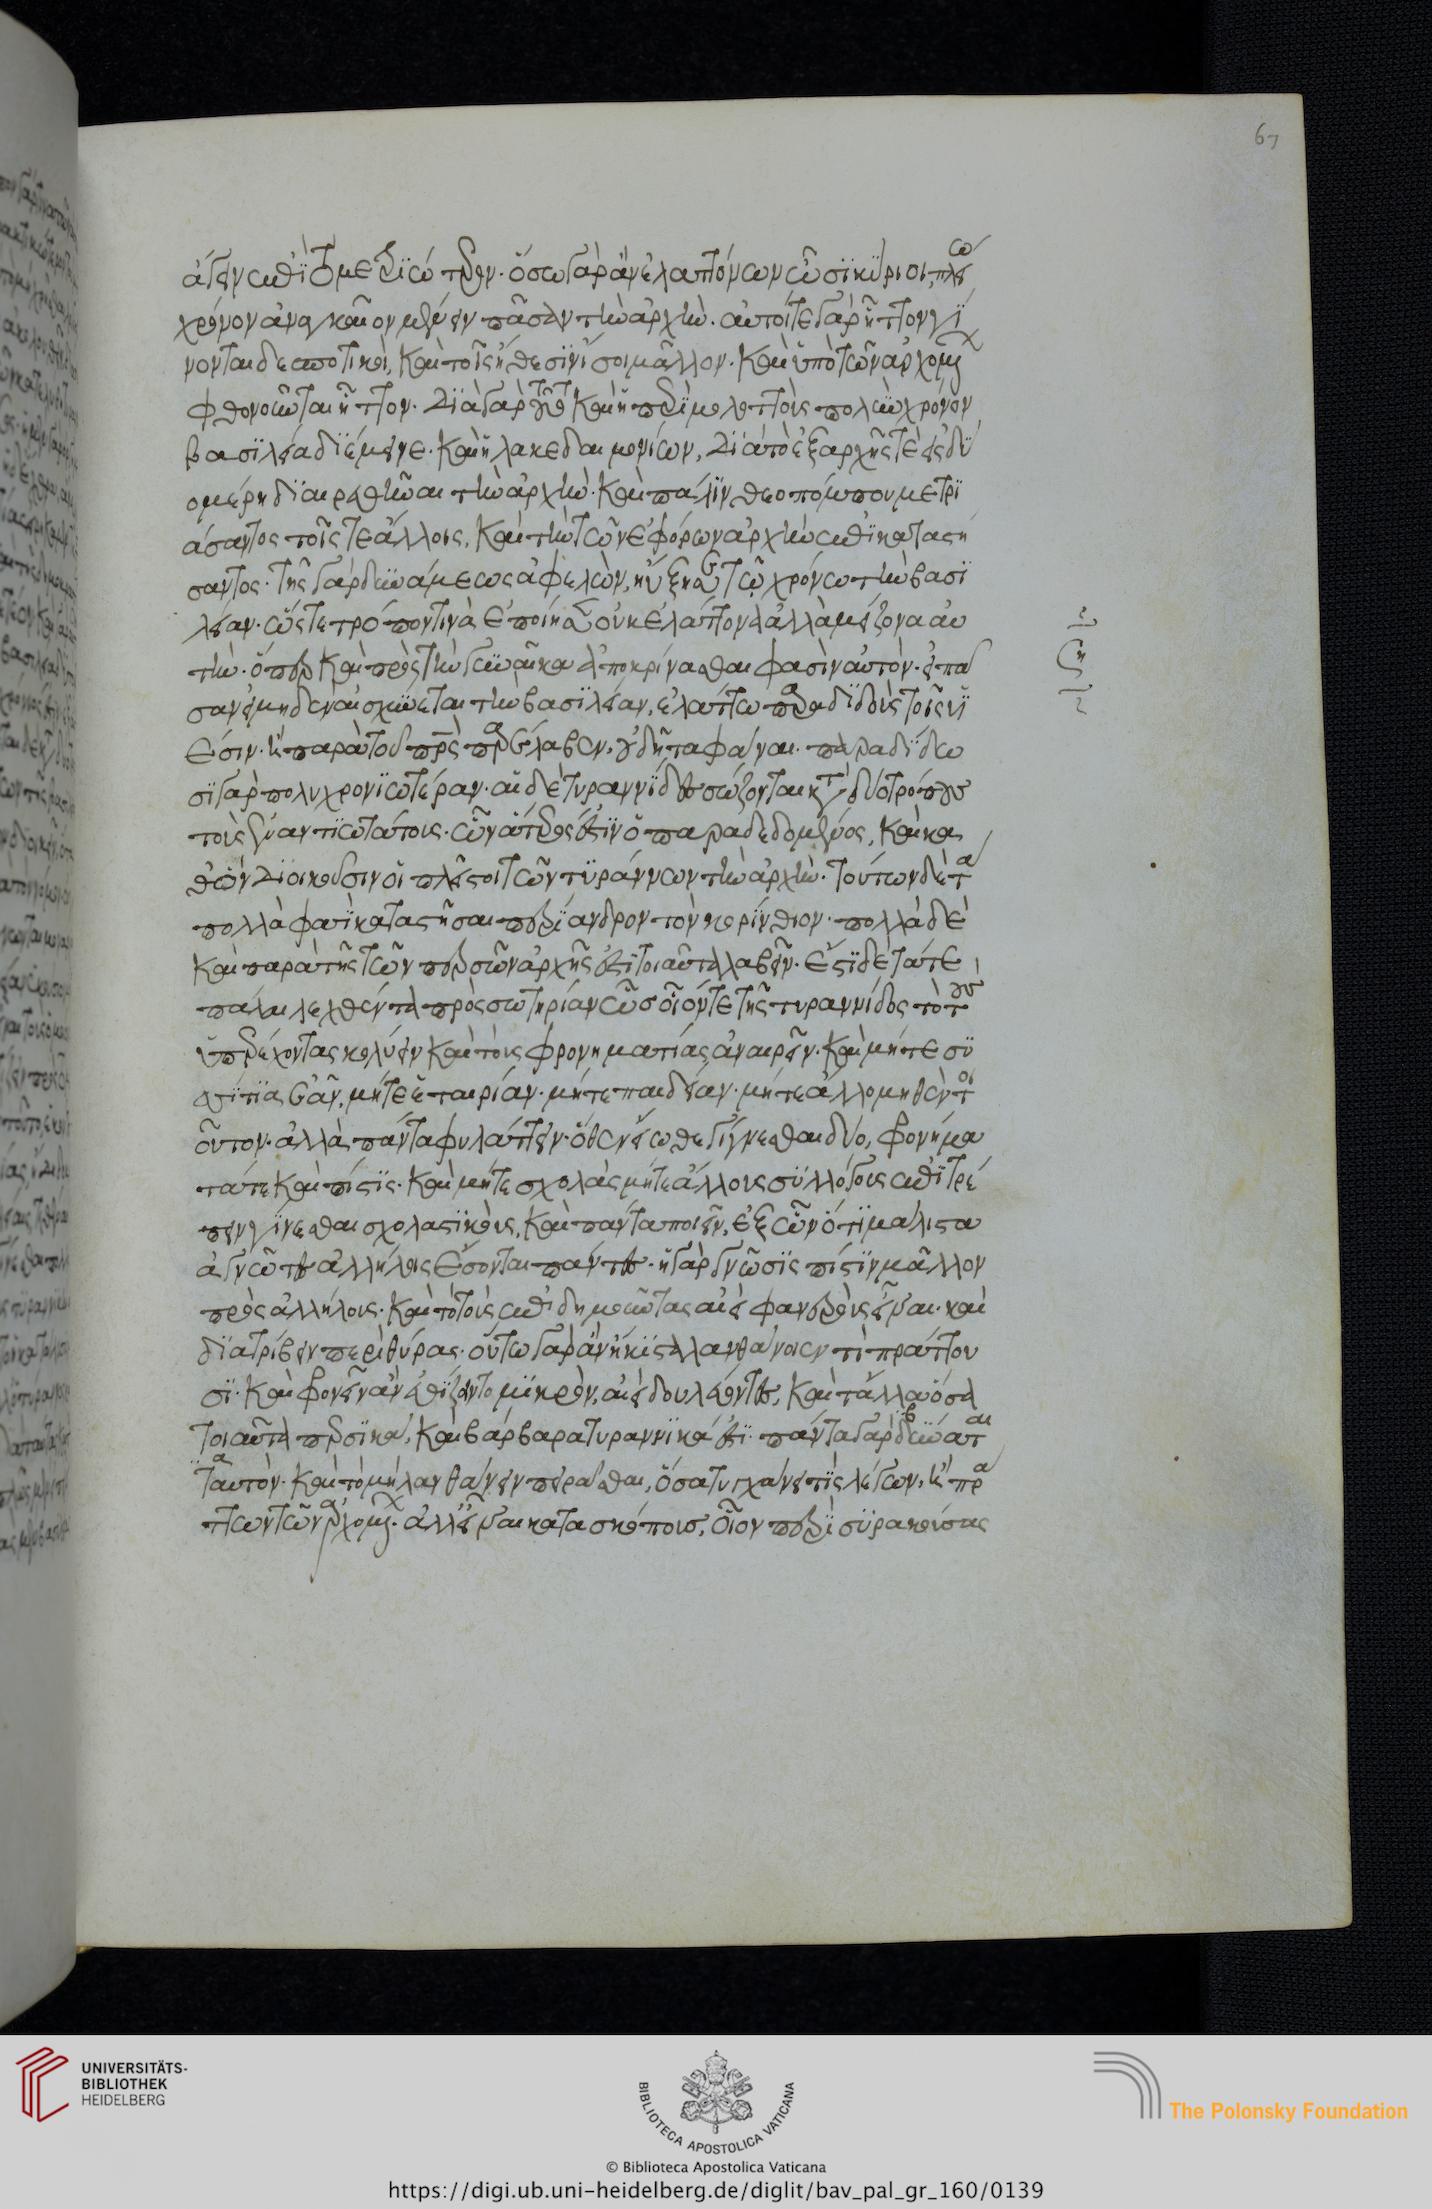 67
ἄγειν ἐπὶ τὸ μετριώτερον. ὅσῳ γὰρ ἂν ἐλαττόνων ὦσι κύριοι, πλείω
χρόνον ἀναγκαῖον μένειν πᾶσαν τὴν ἀρχήν. αὐτοί τε γὰρ ἧττον γί
νονται δεσποτικοὶ, καὶ τοῖς ἤθεσιν ἴσοι μᾶλλον. καὶ ὑπὸ τῶν ἀρχομένων
φθονοῦνται ἧττον. διὰ γὰρ τοῦτο καὶ ἡ περὶ μολοττοὺς πολὺν χρόνον
βασιλεία διέμεινε. καὶ ἡ λακεδαιμονίων, διὰ τὸ ἐξ ἀρχῆς τε εἰς δύ
ο μέρη διαιρεθῆναι τὴν ἀρχήν. καὶ πάλιν θεοπόμπου μετρι
άσαντος τοῖς τε ἄλλοις, καὶ τὴν τῶν ἐφόρων ἀρχὴν ἐπικαταστή
σαντος. τῆς γὰρ δυνάμεως ἀφελὼν, ηὔξησε τῷ χρόνῳ τὴν βασι
λείαν. ὥστε τρόπον τινὰ ἐποίησεν οὐκ ἐλάττονα ἀλλὰ μείζονα αὐ
τήν. ὅπερ καὶ πρὸς τὴν γυναῖκα ἀποκρίνασθαι φασὶν αὐτόν. εἰποῦ
σαν εἰ μηδὲν αἰσχύνεται τὴν βασιλείαν, ἐλάττω παραδιδοὺς τοῖς υἱ
έσιν. ἢ παρὰ τοῦ πρς παρέλαβεν, οὐ δῆτα φάναι. παραδίδω
σι γὰρ πολυχρονιωτέραν. αἱ δὲ τυραννίδες σώζονται κατὰ δύο τρόπους
τοὺς ἐναντιωτάτους. ὧν ἅτερός ἐστιν ὁ παραδεδομένος, καὶ κα
θ' ὃν διοικοῦσιν οἱ πλεῖστοι τῶν τυράννων τὴν ἀρχήν. τούτων δὲ τὰ
πολλὰ φασὶ καταστῆσαι περίανδρον τὸν κορίνθιον. πολλὰ δὲ
καὶ παρὰ τῆς τῶν περσῶν ἀρχῆς ἔστι τοιαῦτα λαβεῖν. ἔστι δὲ τά τε
πάλαι λεχθέντα πρὸς σωτηρίαν ὡς οἷόν τε τῆς τυραννίδος τὸ τοὺς
ὑπερέχοντας κολύειν καὶ τοὺς φρονηματίας ἀναιρεῖν. καὶ μήτε συ
σσίτια ἐᾶν, μήτε ἑταιρίαν. μήτε παιδείαν. μήτε ἄλλο μηθὲν τοι
οῦτον. ἀλλὰ πάντα φυλάττειν. ὅθεν εἴωθε γίγνεσθαι δύο, φρονήμα
τά τε καὶ πίστις. καὶ μήτε σχολὰς μήτε ἄλλους συλλόγους ἐπιτρέ
πειν γίνεσθαι σχολαστικοὺς, καὶ πάντα ποιεῖν, ἐξ ὧν ὅτι μάλιστα
ἀγνῶτες ἀλλήλοις ἔσονται πάντες. ἡ γὰρ γνῶσις πίστιν μᾶλλον
πρὸς ἀλλήλους. καὶ τὸ τοὺς ἐπιδημοῦντας αἰεὶ φανεροὺς εἶναι. καὶ
διατρίβειν περὶ θύρας. οὕτω γὰρ ἂν ἥκιστα λανθάνοιεν τί πράττου
σι. καὶ φρονεῖν ἂν ἐθίζοιντο μικρὸν, αἰεὶ δουλεύοντες, καὶ τἄλλα ὅσα
τοιαῦτα περσικὰ, καὶ βάρβαρα τυραννικά ἐστι. πάντα γὰρ δύναται
ταυτόν. καὶ τὸ μὴ λανθάνειν πειρᾶσθαι, ὅσα τυγχάνει τὶς λέγων, ἢ πρά
ττων τῶν ἀρχομένων. ἀλλ' εἶναι κατασκόπους, οἷον περὶ συρακούσας
UNIVERSITÄTS-
BIBLIOTHEK
HEIDELBERG
BIBLIOTECA APOSTOLICA VATICANA
© Biblioteca Apostolica Vaticana
The Polonsky Foundation
https://digi.ub.uni-heidelberg.de/diglit/bav_pal_gr_160/0139